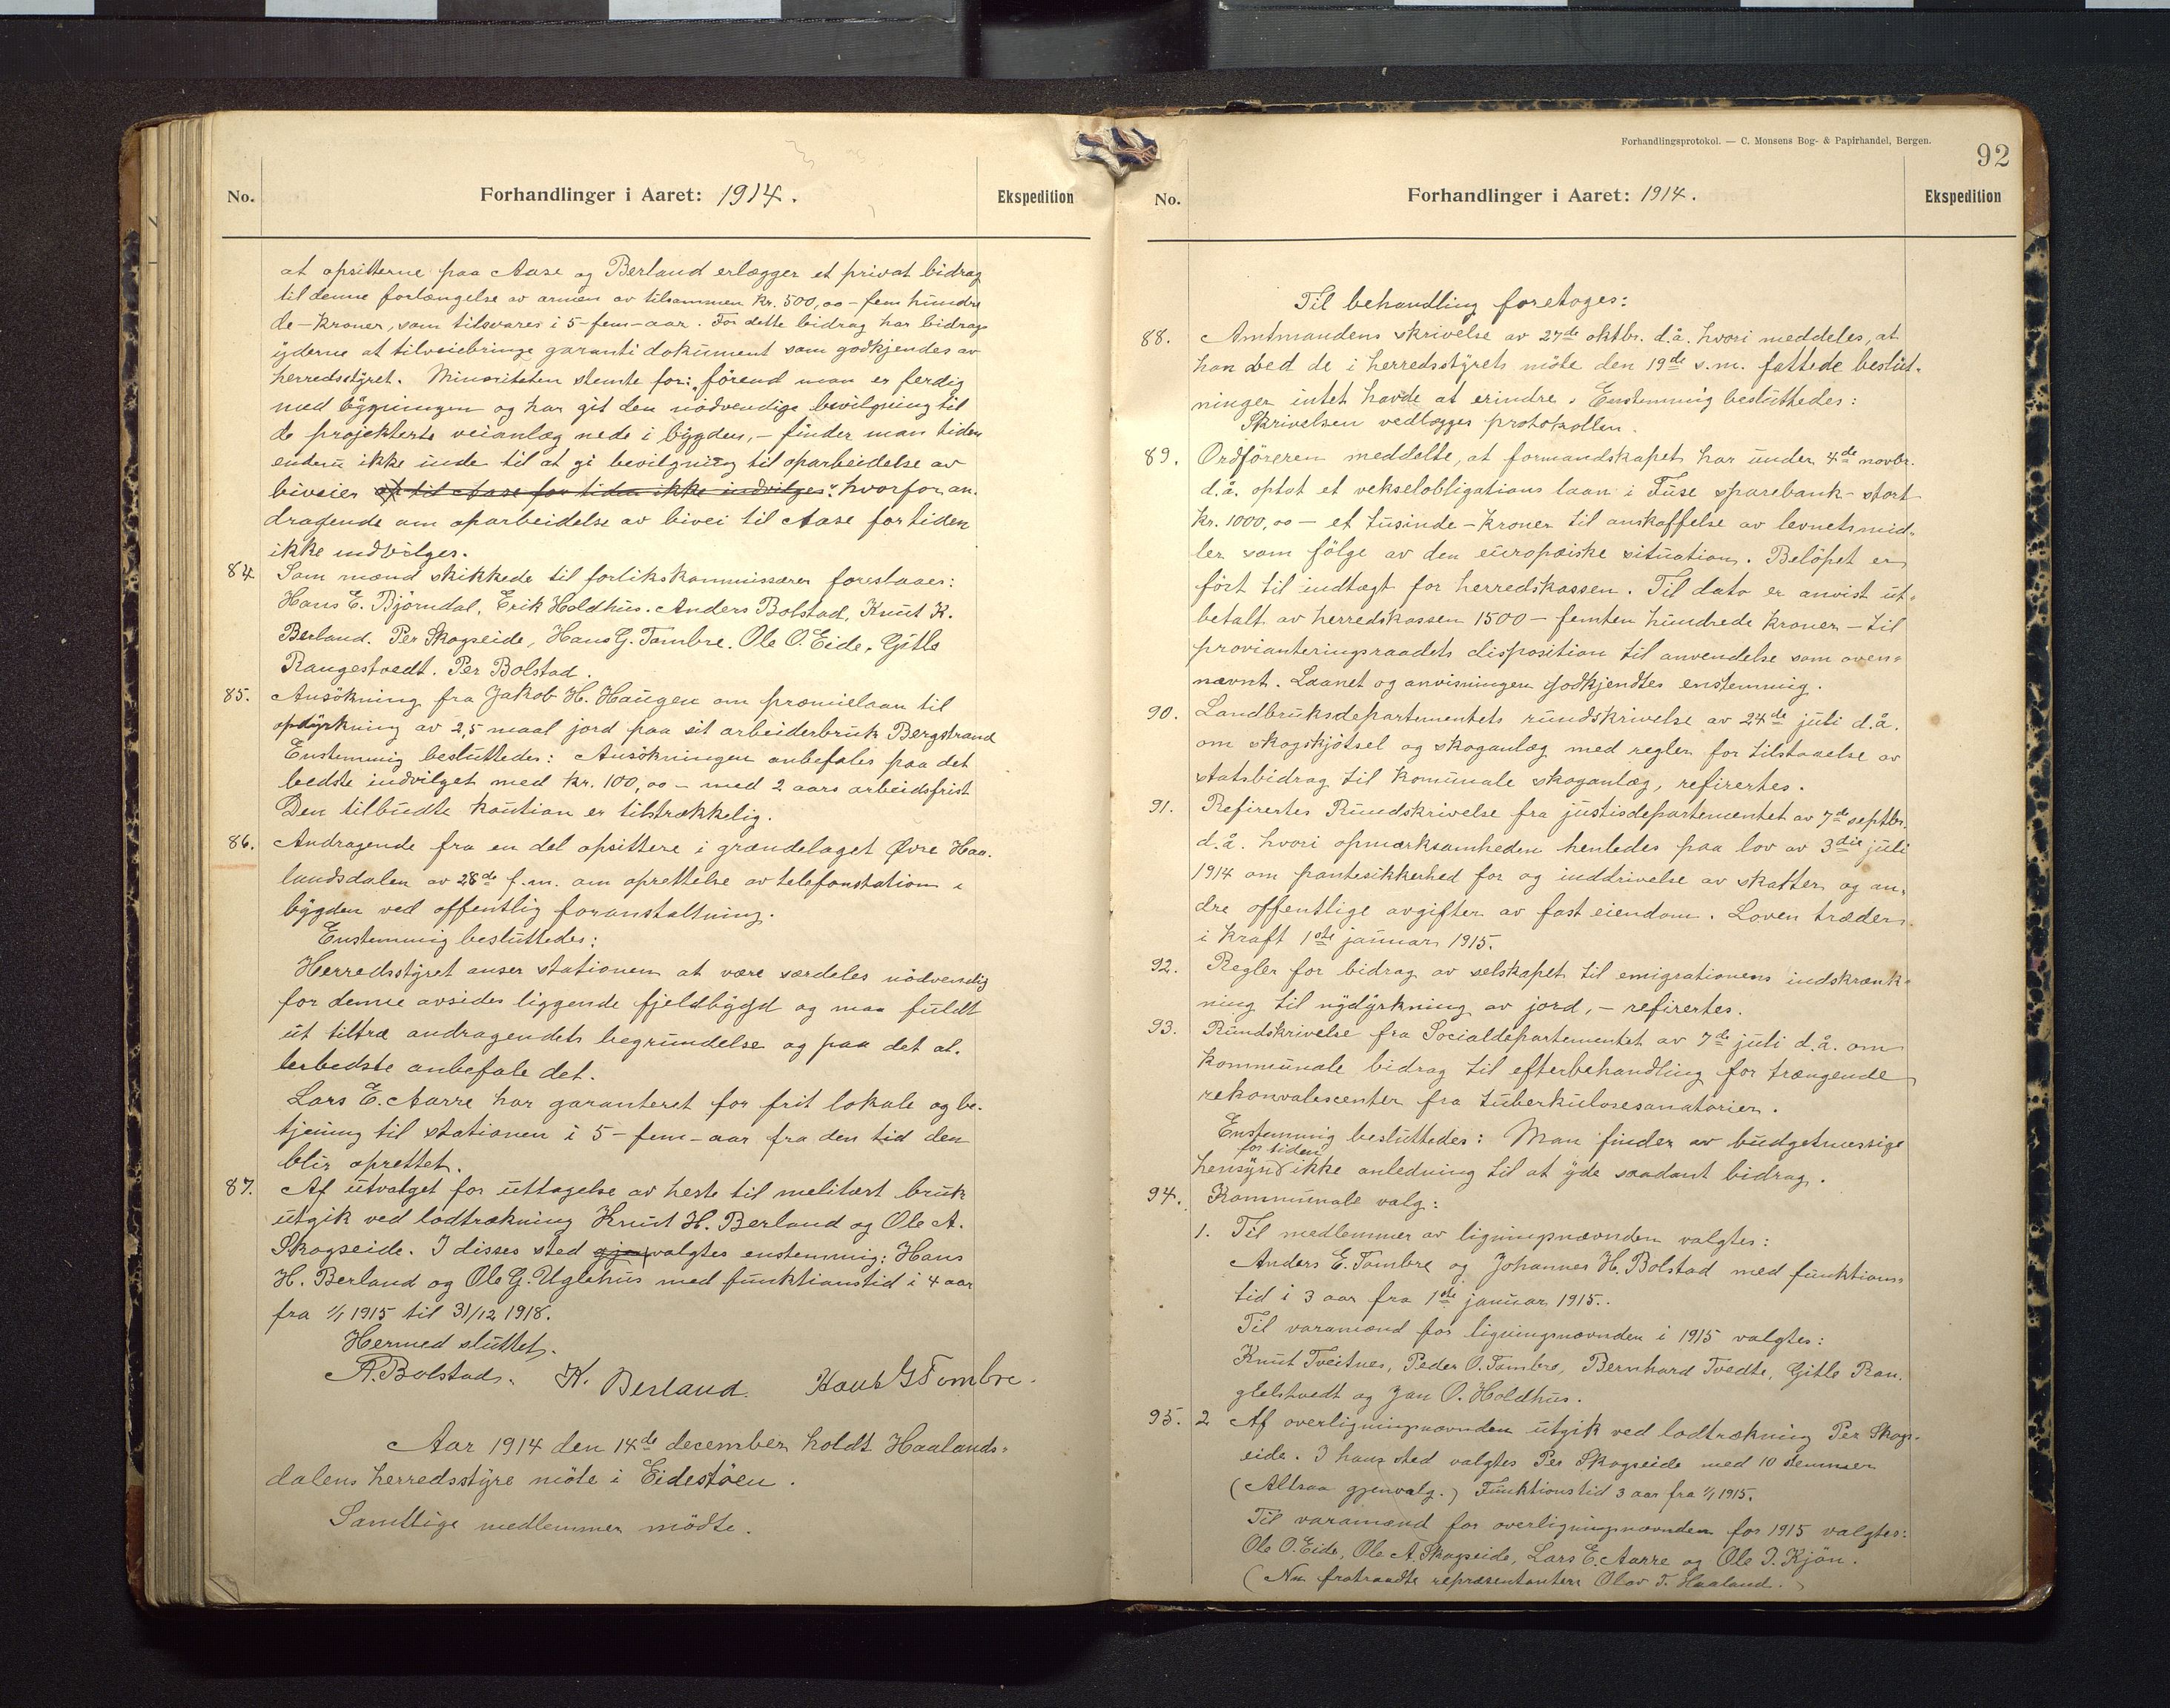 No.
Forhandlinger i Aaret: 1914.
Ekspedition
at opsitterne paa Aase og Berland erlægger et privat bidrag
til denne forlængelse av armen av tilsammen kr. 500,00 - fem hundre
de - kroner, som tilsvares i 5 - fem - aar. For dette bidrag har bidrags
yderne at tilveiebringe garantidokument som godkjendes av
herredsstyret. Minoriteten stemte for: "førend man er ferdig
med bygningen og har git den nødvendige bevilgning til
de projekterte veianlæg nede i bygden, - finder man tiden
endnu ikke inde til at gi bevilgning til oparbeidelse av
biveier at til Aase for tiden ikke indvilges". hvorfor an-
dragende om oparbeidelse av bivei til Aase for tiden
ikke indvilges.
84 Som mænd skikkede til forlikskommissærer forestaaes:
Hans E. Bjørndal, Erik Holdhus. Anders Bolstad, Knut K.
Berland. Per Skogseide, Hans G. Tombre. Ole O. Eide, Gitle
Rangestvedt. Per Bolstad.
85. Ansøkning fra Jakob H. Haugen om præmielaan til
opdyrkning av 2,5 maal jord paa sit arbeiderbruk Bergstrand
Enstemmig besluttedes: Ansøkningen anbefales paa det
bedste indvilget med kr. 100,00 - med 2 aars arbeidsfrist
Den tilbudte kaution er tilstrækkelig.
86. Andragende fra en del opsittere i grændelaget Øvre Haa-
landsdalen av 28de f.m. om oprettelse av telefonstation i
bygden ved offentlig foranstaltning.
Enstemmig besluttedes:
Herredsstyret anser stationen at være særdeles nødvendig
for denne avsides liggende fjeldbygd og maa fuldt
ut tiltræ andragendets begrundelse og paa det al-
lerbedste anbefale det.
Lars E. Aarre har garanteret for frit lokale og be-
tjening til stationen i 5 - fem - aar fra den tid den
blir oprettet.
87. Af utvalget for uttagelse av heste til militært bruk
utgik ved lodtrækning Knut H. Berland og Ole A.
Skogseide. I disses sted gjen valgtes enstemmig: Hans
H. Berland og Ole G. Uglehus med funktionstid i 4 aar
fra 1/1 1915 til 31/12 1918.
Hermed sluttet.
A. Bolstad. K. Berland. Hans G Tombre.
Aar 1914 den 14de december holdt Haalands-
dalens herredsstyre møte i Eidestøen.
Samtlige medlemmer mødte.
Forhandlingsprotokol. — C. Monsens Bog- & Papirhandel, Bergen.
92
No.
Forhandlinger i Aaret: 1914.
Ekspedition
Til behandling foretoges:
88. Amtmandens skrivelse av 27de oktbr. d.å. hvori meddeles, at
han ved de i herredsstyrets møte den 19de s.m. fattede beslut-
ninger intet havde at erindre. Enstemmig besluttedes:
Skrivelsen vedlægges protokollen.
89. Ordføreren meddelte, at formandskapet har under 4de novbr.
d.å. optat et vekselobligations laan i Fuse sparebank - stort
kr. 1000,00 - et tusinde - kroner til anskaffelse av levnetsmid-
ler som følge av den europæiske situation. Beløpet er
ført til indtægt for herredskassen. Til dato er anvist ut-
betalt av herredskassen 1500 - femten hundrede kroner - til
provianteringsraadets disposition til anvendelse som oven-
nævnt. Laanet og anvisningen godkjendtes enstemmig.
90. Landbruksdepartementets rundskrivelse av 24de juli d.å.
om skogskjøtsel og skoganlæg med regler for tilstaaelse av
statsbidrag til komunale skoganlæg, refirertes.
91. Refirertes Rundskrivelse fra justisdepartementet av 7de septbr.
d.å. hvori opmerksamheden henledes paa lov av 3die juli
1914 om pantesikkerhed for og inddrivelse av skatter og an-
dre offentlige avgifter av fast eiendom. Loven træder
i kraft 1ste januar 1915.
92. Regler for bidrag av selskapet til emigrationens indskrænk-
ning til nydyrkning av jord, - refirertes.
93. Rundskrivelse fra Socialdepartementet av 7de juli d.å. om
kommunale bidrag til efterbehandling for trængende
rekonvalescenter fra tuberkulosesanatorier.
Enstemmig besluttedes: Man finder av budgetmæssige
for tiden
hensyn ikke anledning til at yde saadant bidrag.
94. Kommunale valg:
1. Til medlemmer av ligningsnævnden valgtes:
Anders E. Tombre og Johannes H. Bolstad med funktions-
tid i 3 aar fra 1ste januar 1915.
Til varamænd for ligningsnævnden i 1915 valgtes:
Knut Tveitnes, Peder O. Tombre, Bernhard Tvedte, Gitle Ran-
gelstvedt og Jan O. Holdhus.
95. 2 Af overligningsnævnden utgik ved lodtrækning Per Skogs-
eide. I hans sted valgtes Per Skogseide med 10 stemmer
(Altsaa gjenvalg.) Funktionstid 3 aar fra 1/1 1915.
Til varamænd for overligningsnævnden for 1915 valgtes:
Ole O. Eide, Ole A. Skogseide, Lars E. Aarre og Ole I. Kjøn.
(Nu fratraadte repræsentanter Olav T. Haaland.)